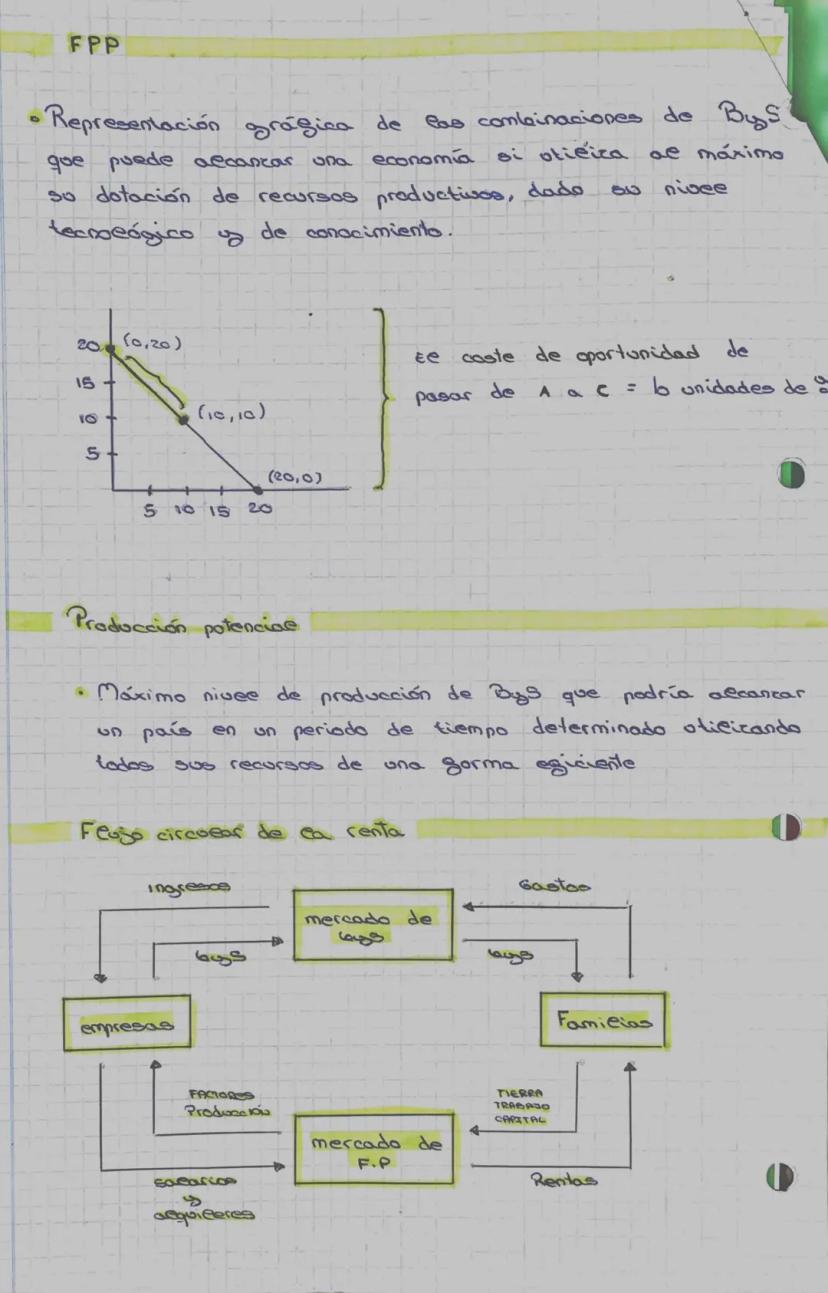 FPP
Representación gráfica de las combinaciones de ByS
que puede alcanzar una economía si utiliza al máximo
su dotación de recursos productivos, dado su nivel
tecnológico y de conocimiento.
20 (0,20)
15
10 (10,10)
5
(20,0)
5 10 15 20
El coste de oportunidad de
pasar de A a C = b unidades de
Producción potencial
Máximo nivel de producción de ByS que podría alcanzar
un país en un periodo de tiempo determinado utilizando
todos sus recursos de una forma eficiente
Flujo circular de la renta
Ingresos
Gastos
mercado de
bys
bys
bys
empresas
Familias
FACTORES
Producción
TIERRA
TRABAJO
CAPITAL
mercado de
F.P
salarios
y
alquileres
Rentas